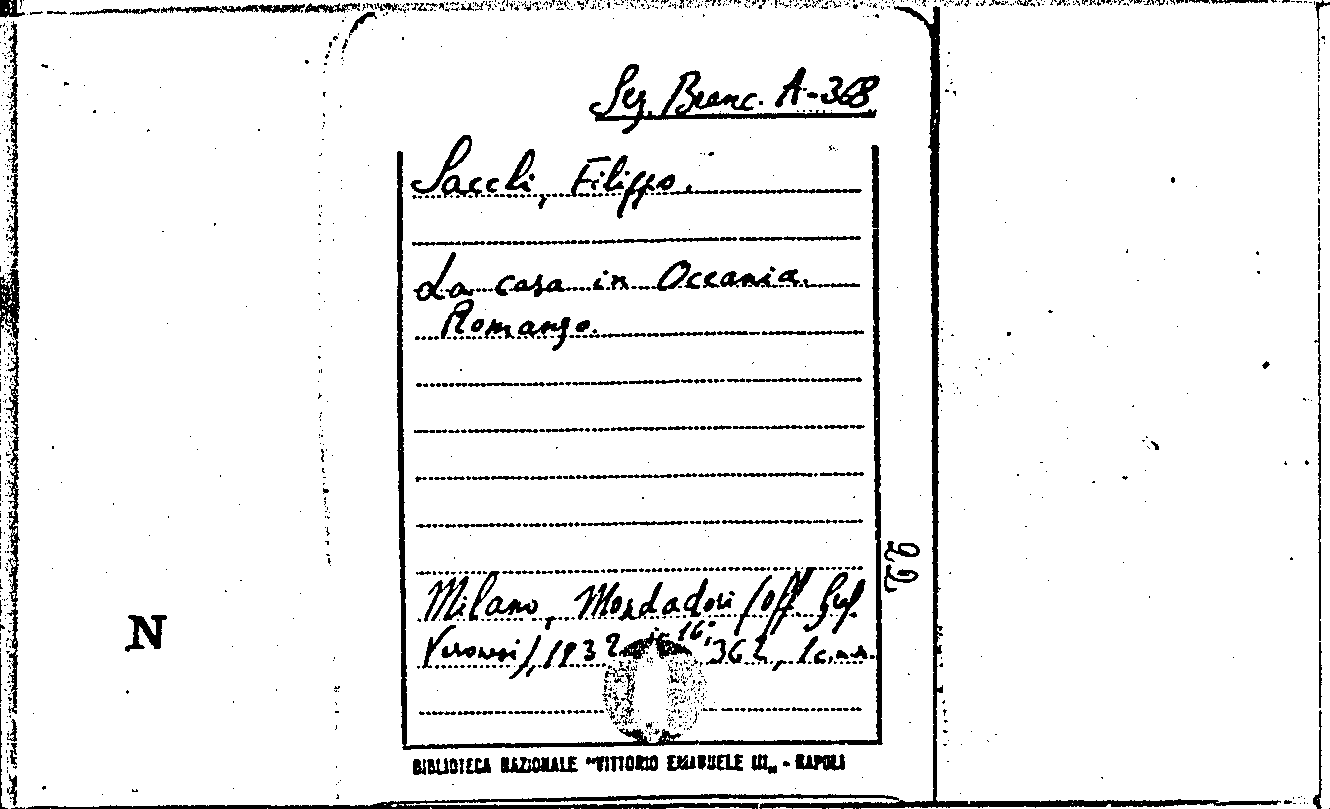 Sez. Branc. A-368
Sacchi, Filippo.
La casa in Oceania.
Romanzo.
Milano, Mondadori (Off. Graf.
Veronesi), 1932 in 16; 362, 1 c.n.n.
22
N
BIBLIOTECA NAZIONALE "VITTORIO EMANUELE III„ - NAPOLI